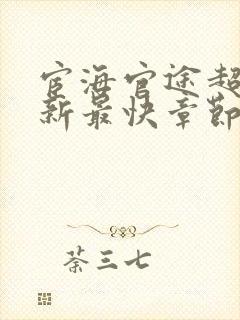 宦海官途超
新最快章節
荼三七